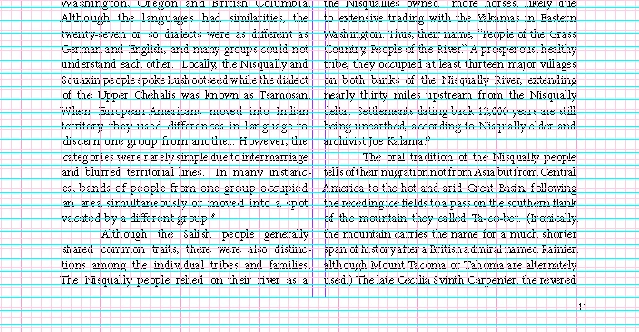 Washington, Oregon and British Columbia.
Although the languages had similarities, the
twenty-seven or so dialects were as different as
German and English, and many groups could not
understand each other. Locally, the Nisqually and
Squaxin people spoke Lushootseed while the dialect
of the Upper Chehalis was known as Tsamosan.
When European-Americans moved into Indian
territory they used differences in language to
discern one group from another. However, the
categories were rarely simple due to intermarriage
and blurred territorial lines. In many instanc-
es, bands of people from one group occupied
an area simultaneously or moved into a spot
vacated by a different group.
Although the Salish people generally
shared common traits, there were also distinc-
tions among the individual tribes and families.
The Nisqually people relied on their river as a
the Nisquallies owned more horses, likely due
to extensive trading with the Yakamas in Eastern
Washington. Thus, their name, "People of the Grass
Country, People of the River." A prosperous, healthy
tribe, they occupied at least thirteen major villages
on both banks of the Nisqually River, extending
nearly thirty miles upstream from the Nisqually
delta. Settlements dating back 12,000 years are still
being unearthed, according to Nisqually elder and
archivist Joe Kalama.
The oral tradition of the Nisqually people
tells of their migration not from Asia but from Central
America to the hot and arid Great Basin, following
the receding ice fields to a pass on the southern flank
of the mountain they called Ta-co-bet. (Ironically,
the mountain carries the name for a much shorter
span of history after a British admiral named Rainier,
although Mount Tacoma or Tahoma are alternately
used.) The late Cecilia Svinth Carpenter, the revered